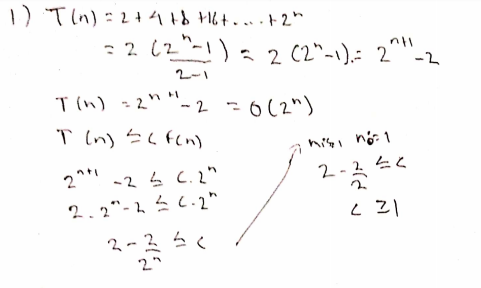 1) T(n) = 2 + 4 + 8 + 16 + .... + 2ⁿ
= 2 (2ⁿ-1 / 2-1) = 2 (2ⁿ-1) = 2ⁿ⁺¹ - 2
T(n) = 2ⁿ⁺¹ - 2 = O(2ⁿ)
T(n) ≤ c f(n)
2ⁿ⁺¹ - 2 ≤ c. 2ⁿ
2. 2ⁿ - 2 ≤ c. 2ⁿ
2 - 2/2ⁿ ≤ c
n0=1
2 - 2/2 ≤ c
c ≥ 1